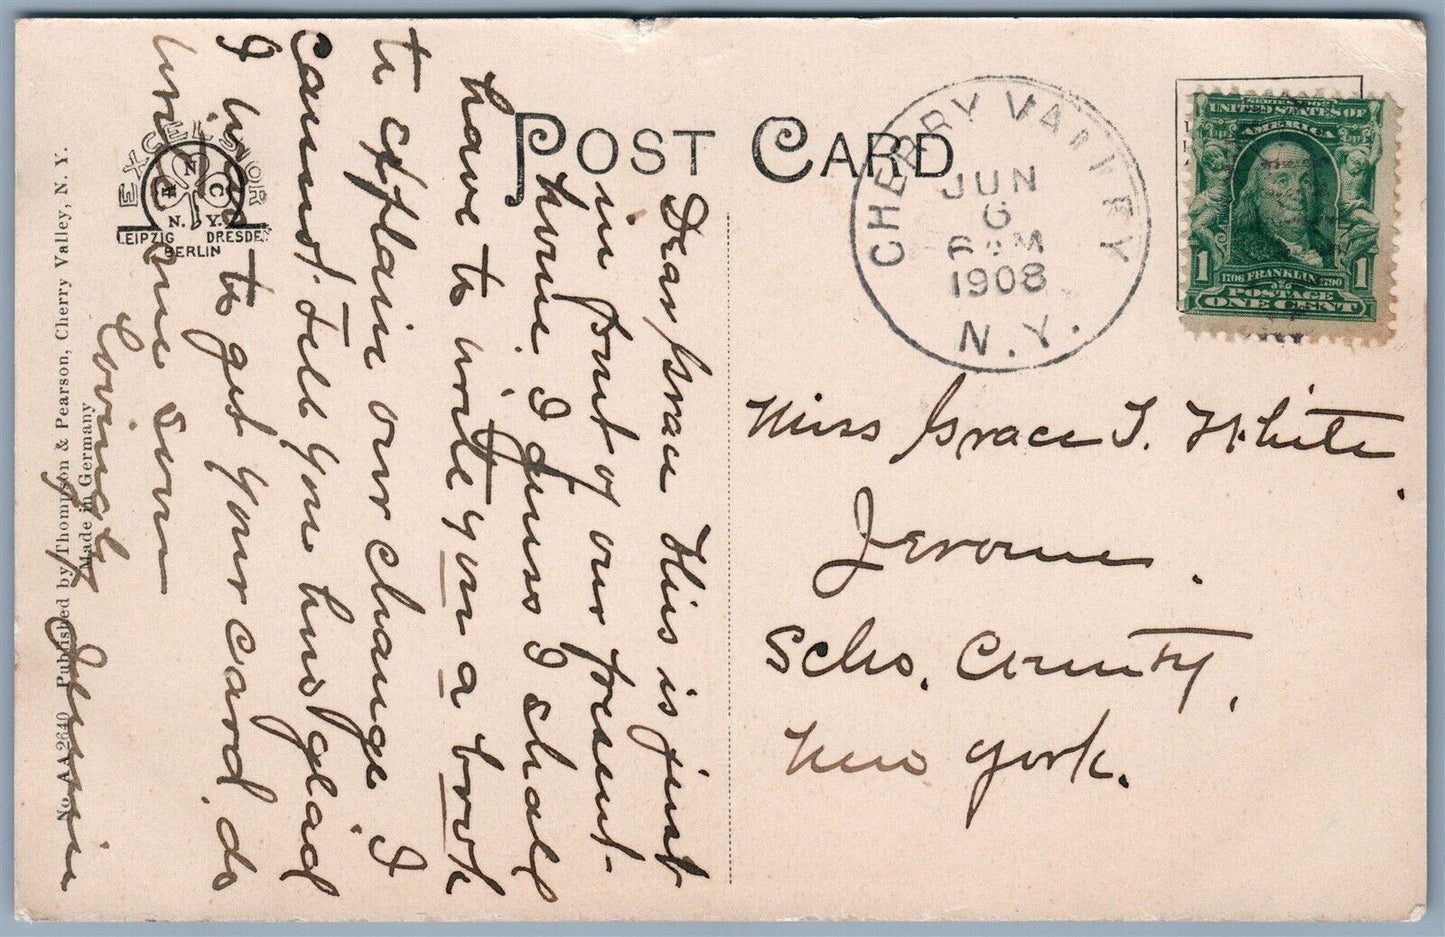 POST CARD
CHERRY VALLEY
JUN
6
6 M
1908
N.Y.
SERIES 1902
UNITED STATES OF
AMERICA
1706 FRANKLIN 1790
1 1
POSTAGE
ONE CENT
EXCELSIOR
N
N. Y.
LEIPZIG DRESDEN
BERLIN
No. AA 2640 Published by Thompson & Pearson, Cherry Valley, N. Y.
Made in Germany
Dear Grace This is just
in front of our present
home. I guess I shall
have to write you a book
to explain our change. I
cannot tell you how glad
I was to get your card. do
write me soon
Lovingly
Miss Grace T. White.
Jerome.
Scho. County,
New York.